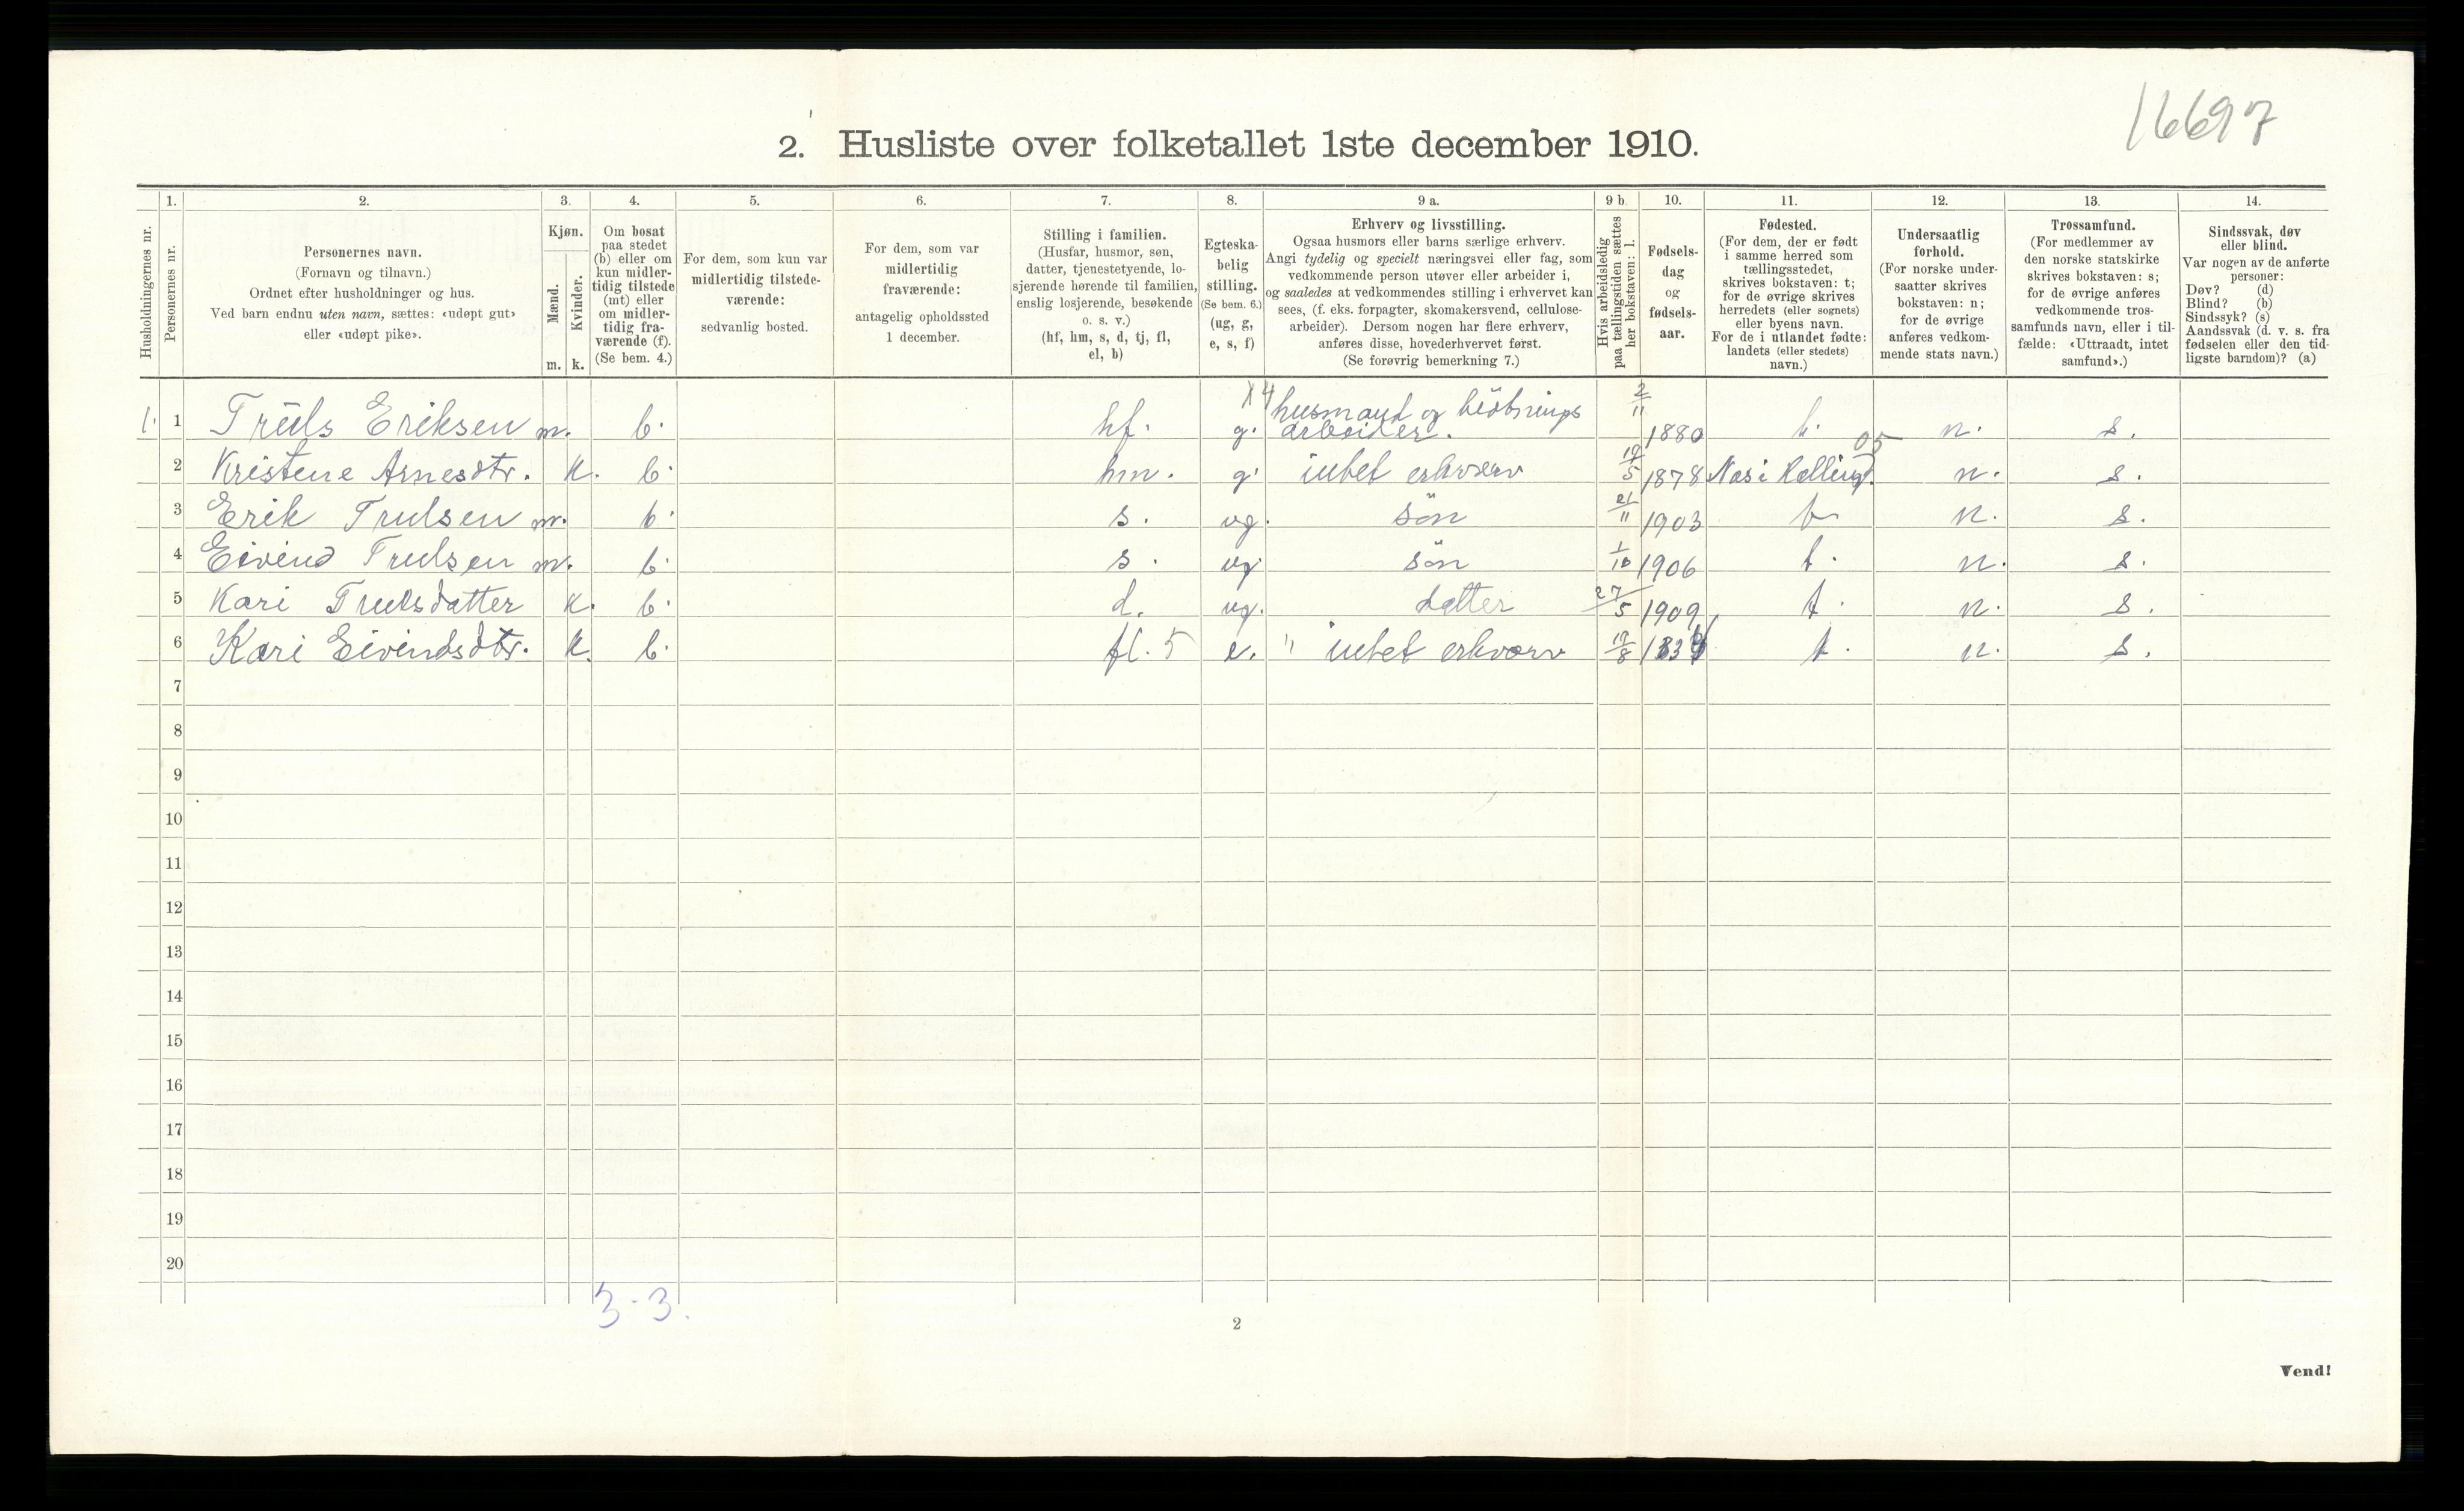 16697
2. Husliste over folketallet 1ste december 1910.
Husholdningernes nr.
1. Personernes nr.
2. Personernes navn.
(Fornavn og tilnavn.)
Ordnet efter husholdninger og hus.
Ved barn endnu uten navn, sættes: «udøpt gut»
eller «udøpt pike».
3. Kjøn.
Mænd. m.
Kvinder. k.
4. Om bosat
paa stedet
(b) eller om
kun midler-
tidig tilstede
(mt) eller
om midler-
tidig fra-
værende (f).
(Se bem. 4.)
5. For dem, som kun var
midlertidig tilstede-
værende:
sedvanlig bosted.
6. For dem, som var
midlertidig
fraværende:
antagelig opholdssted
1 december.
7. Stilling i familien.
(Husfar, husmor, søn,
datter, tjenestetyende, lo-
sjerende hørende til familien,
enslig losjerende, besøkende
o. s. v.)
(hf, hm, s, d, tj, fl,
el, b)
8. Egteska-
belig
stilling.
(Se bem. 6.)
(ug, g,
e, s, f)
9 a. Erhverv og livsstilling.
Ogsaa husmors eller barns særlige erhverv.
Angi tydelig og specielt næringsvei eller fag, som
vedkommende person utøver eller arbeider i,
og saaledes at vedkommendes stilling i erhvervet kan
sees, (f. eks. forpagter, skomakersvend, cellulose-
arbeider). Dersom nogen har flere erhverv,
anføres disse, hovederhvervet først.
(Se forøvrig bemerkning 7.)
9 b. Hvis arbeidsledig
paa tællingstiden sættes
her bokstaven: l.
10. Fødsels-
dag
og
fødsels-
aar.
11. Fødested.
(For dem, der er født
i samme herred som
tællingsstedet,
skrives bokstaven: t;
for de øvrige skrives
herredets (eller sognets)
eller byens navn.
For de i utlandet fødte:
landets (eller stedets)
navn.)
12. Undersaatlig
forhold.
(For norske under-
saatter skrives
bokstaven: n;
for de øvrige
anføres vedkom-
mende stats navn.)
13. Trossamfund.
(For medlemmer av
den norske statskirke
skrives bokstaven: s;
for de øvrige anføres
vedkommende tros-
samfunds navn, eller i til-
fælde: «Uttraadt, intet
samfund».)
14. Sindssvak, døv
eller blind.
Var nogen av de anførte
personer:
Døv? (d)
Blind? (b)
Sindssyk? (s)
Aandssvak (d. v. s. fra
fødselen eller den tid-
ligste barndom)? (a)
1. 1 Truls Eriksen m. b. hf. g. husmand og arbeider. 2/11 1880 t. n. s.
2 Kristene Arnesdtr. k. b. hm. g. intet erhverv 19/5 1878 Nes i Halling. 05 n. s.
3 Erik Trulsen m. b. s. ug. sön 21/11 1903 t n. s.
4 Eivind Trulsen m. b. s. ug. sön 1/10 1906 t. n. s.
5 Kari Trulsdatter k. b. d. ug. datter 27/5 1909 t. n. s.
6 Kari Eivindsdtr. k. b. fl. 5 e. " intet erhverv 19/8 t. n. s.
7
8
9
10
11
12
13
14
15
16
17
18
19
20
3-3.
2
Vend!